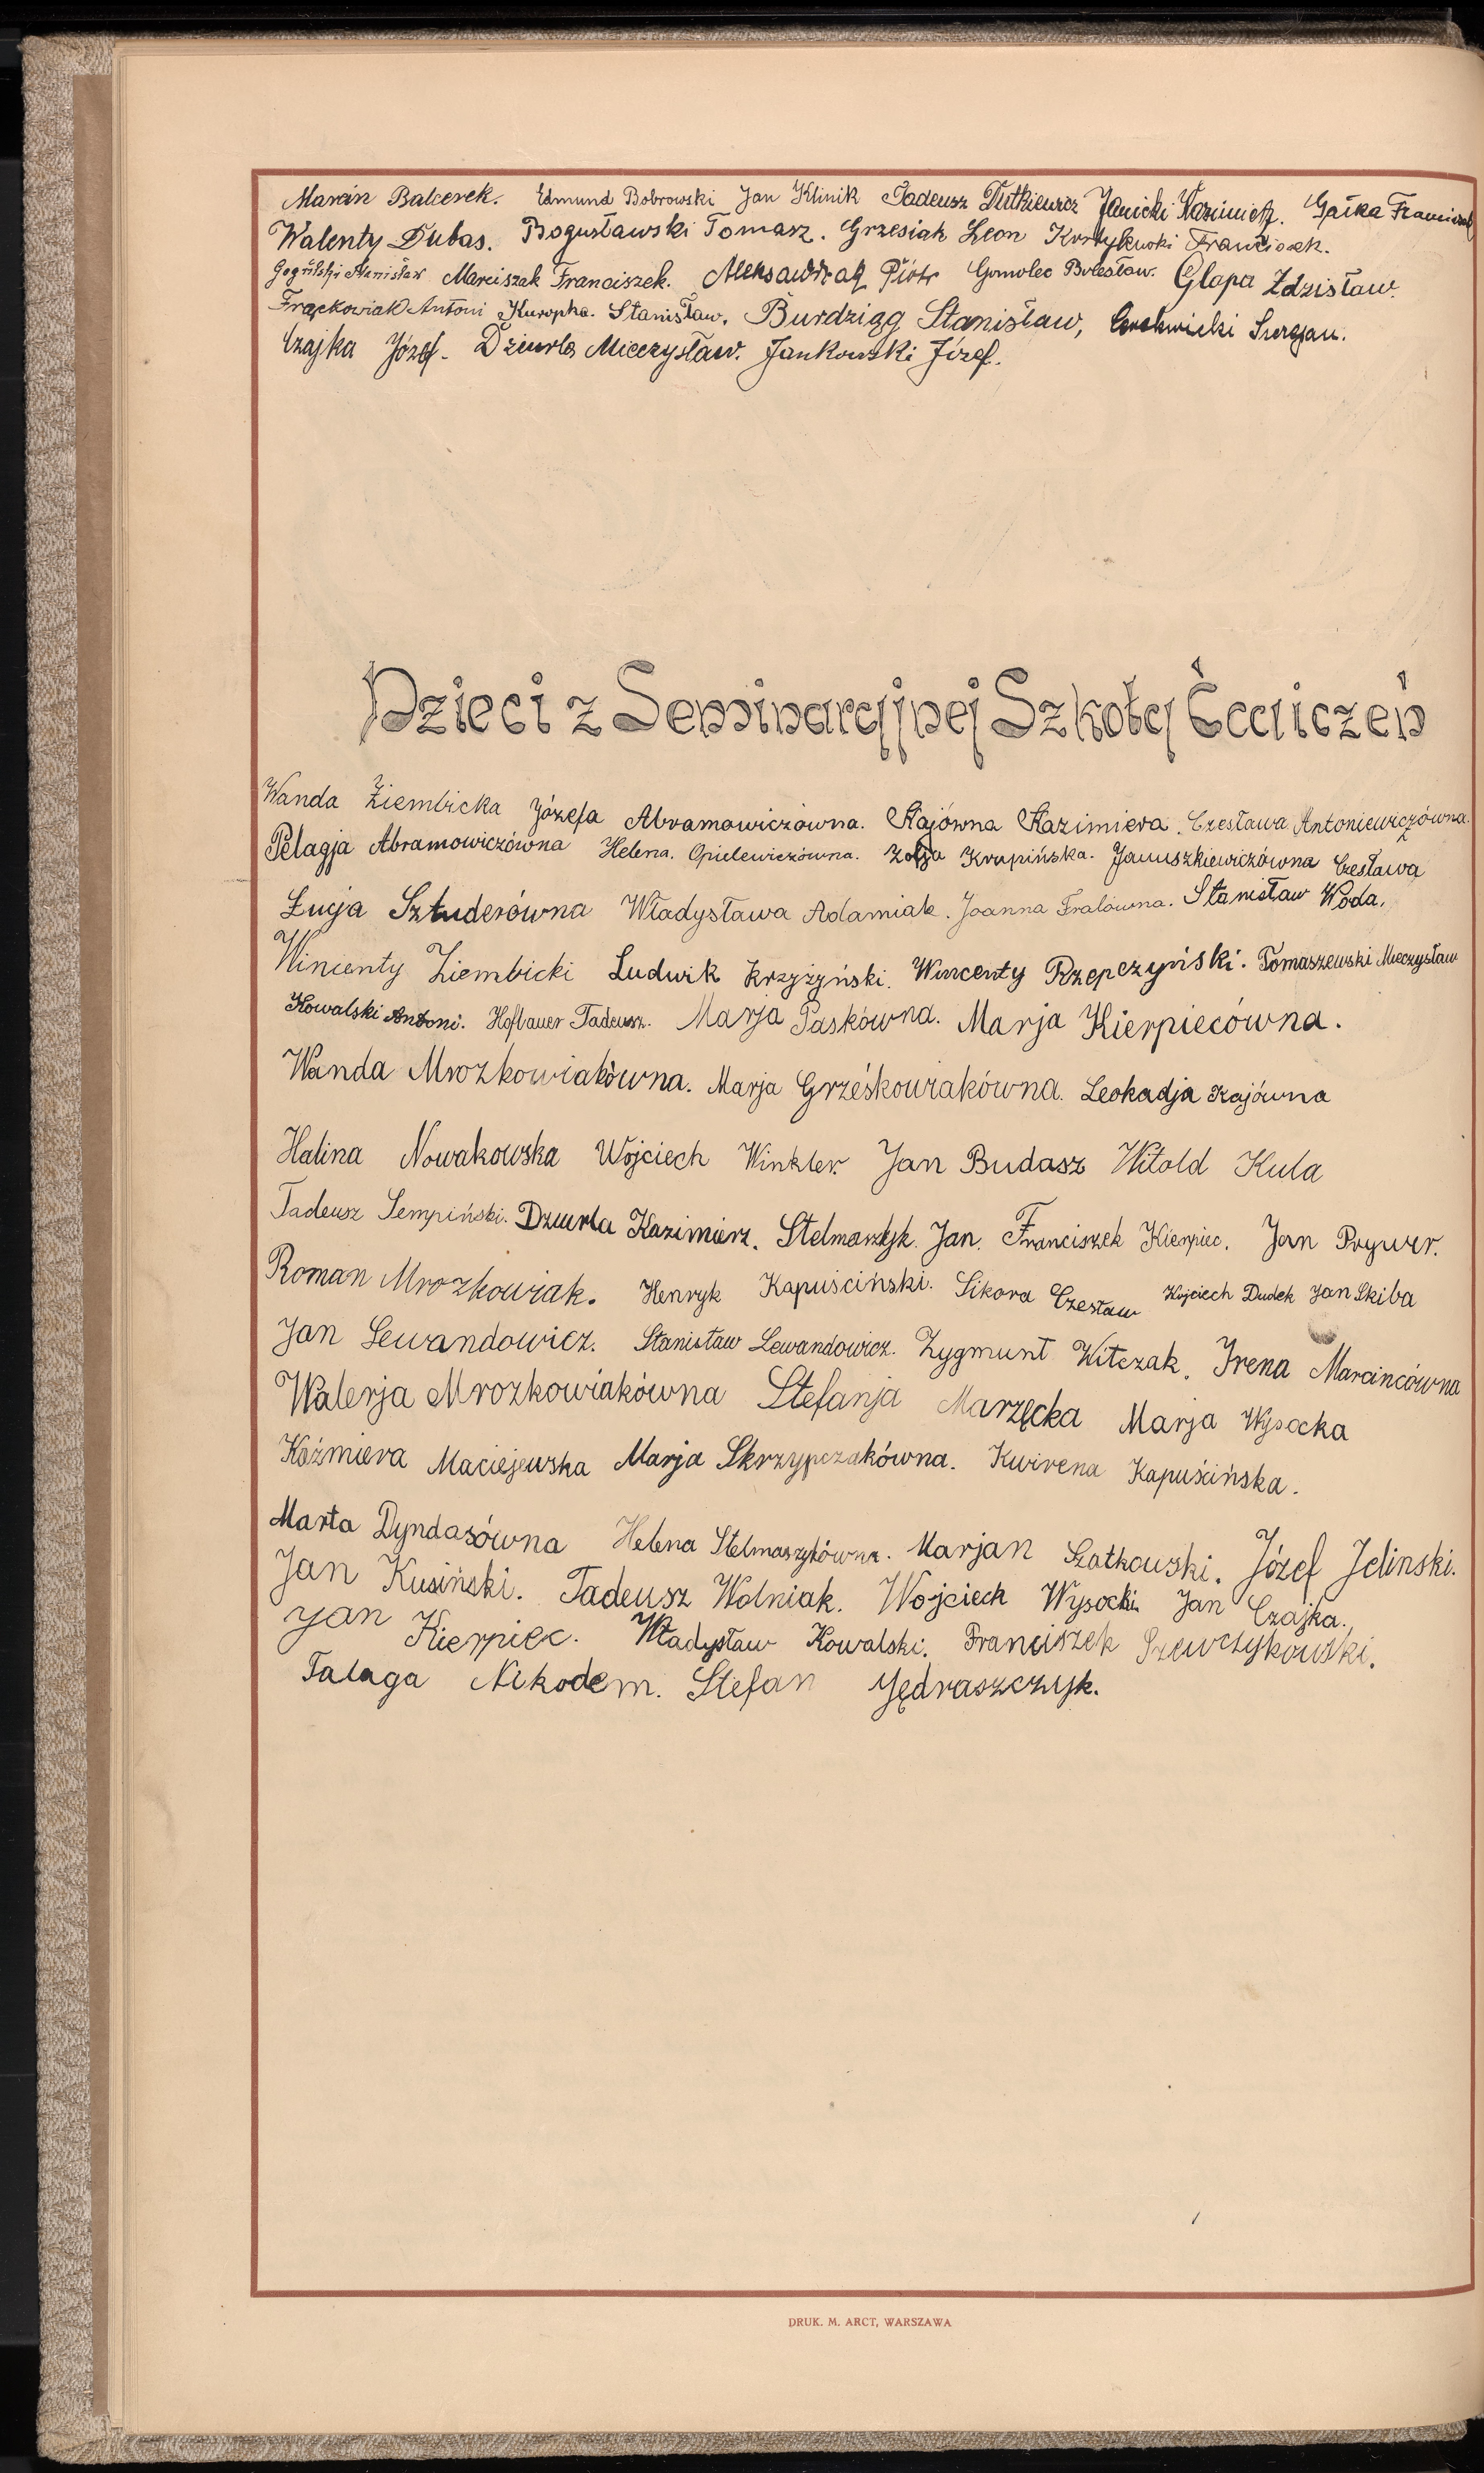 Marcin Balcerek. Edmund Bobrowski Jan Klinik Tadeusz Dutkiewicz Janicki Kazimierz. Gałka Franciszek
Walenty Dubas. Bogusławski Tomasz. Grzesiak Leon Franciszek.
Stanisław Marciszak Franciszek. Aleksandrzak Piotr Gomolec Bolesław. Glapa Zdzisław.
Frąckowiak Antoni Kuropka. Stanisław. Burdziąg Stanisław,
Czajka Józef. Dziurla Mieczysław. Jankowski Józef.
Dzieci z Seminaryjnej Szkoły Ćwiczeń
Wanda Ziembicka Józefa Abramowiczówna. Kajówna Kazimiera. Czesława Antoniewiczówna.
Pelagja Abramowiczówna Helena. Opielewiczówna. Zofja Krupińska. Januszkiewiczówna Czesława
Łucja Sztuderówna Władysława Adamiak. Joanna Fralówna. Stanisław Woda.
Wincenty Ziembicki Ludwik Krzyżyński. Wincenty Rzepczyński. Tomaszewski Mieczysław
Kowalski Antoni. Hofbauer Tadeusz. Marja Paskówna. Marja Kierpiecówna.
Wanda Mrozkowiakówna. Marja Grześkowiakówna. Leokadja Kajówna
Halina Nowakowska Wojciech Winkler Jan Budasz Witold Kula
Tadeusz Sempiński. Dziurla Kazimierz. Stelmaszyk Jan. Franciszek Kierpiec. Jan Prywer.
Roman Mrozkowiak. Henryk Kapuściński. Sikora Czesław Wojciech Dudek Jan Skiba
Jan Lewandowicz. Stanisław Lewandowicz. Zygmunt Witczak. Irena Marcincówna
Walerja Mrozkowiakówna Stefanja Marzęcka Marja Wysocka
Kaźmiera Maciejewska Marja Skrzypczakówna. Kwirena Kapuścińska.
Marta Dyndasówna Helena Stelmaszykówna. Marjan Szatkowski. Józef Jelinski.
Jan Kusiński. Tadeusz Wolniak. Wojciech Wysocki Jan Czajka.
Jan Kierpiec. Władysław Kowalski. Franciszek Szewczykowski.
Talaga Nikodem. Stefan Jędraszczyk.
DRUK. M. ARCT, WARSZAWA